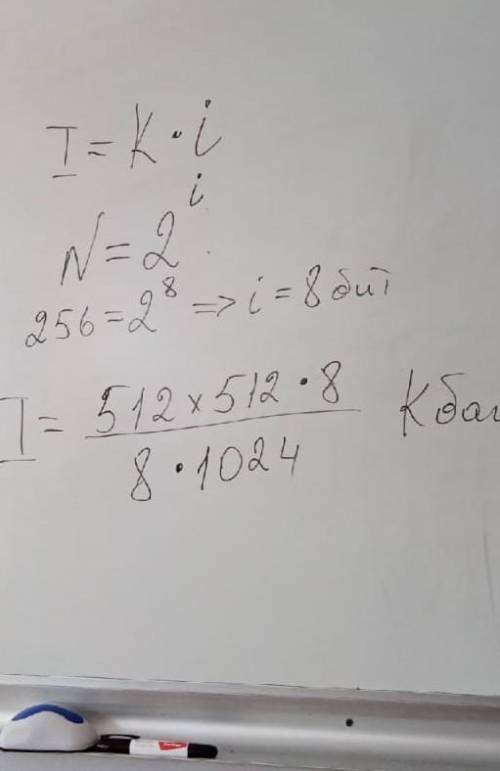 I = K · i
N = 2^i
256 = 2^8 => i = 8 бит
I = 512 × 512 · 8 / 8 · 1024 Кбай